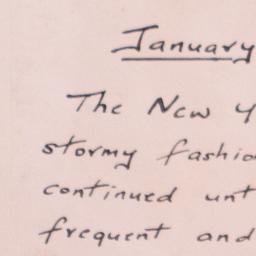 January
The New Y
stormy fashio
continued unt
frequent and